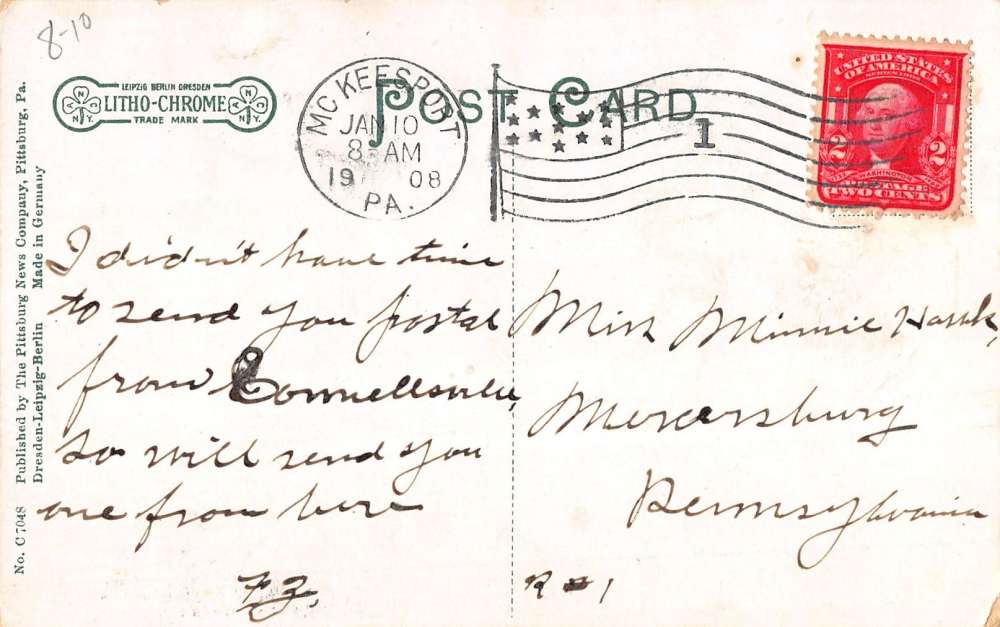 8-10
LEIPZIG BERLIN DRESDEN
LITHO-CHROME
TRADE MARK
N Y C O
N.Y. N.Y.
POST CARD
MCKEESPORT
JAN 10
8-AM
19 08
PA.
1
UNITED STATES
OF AMERICA
2 WASHINGTON 2
TWO CENTS
No. C 7048 Published by The Pittsburg News Company, Pittsburg, Pa.
Dresden-Leipzig-Berlin Made in Germany
I didn't have time
to send you postal
from Connellsville,
so will send you
one from here
F.Z.
Miss Minnie
Mercersburg
Pennsylvania
R 1